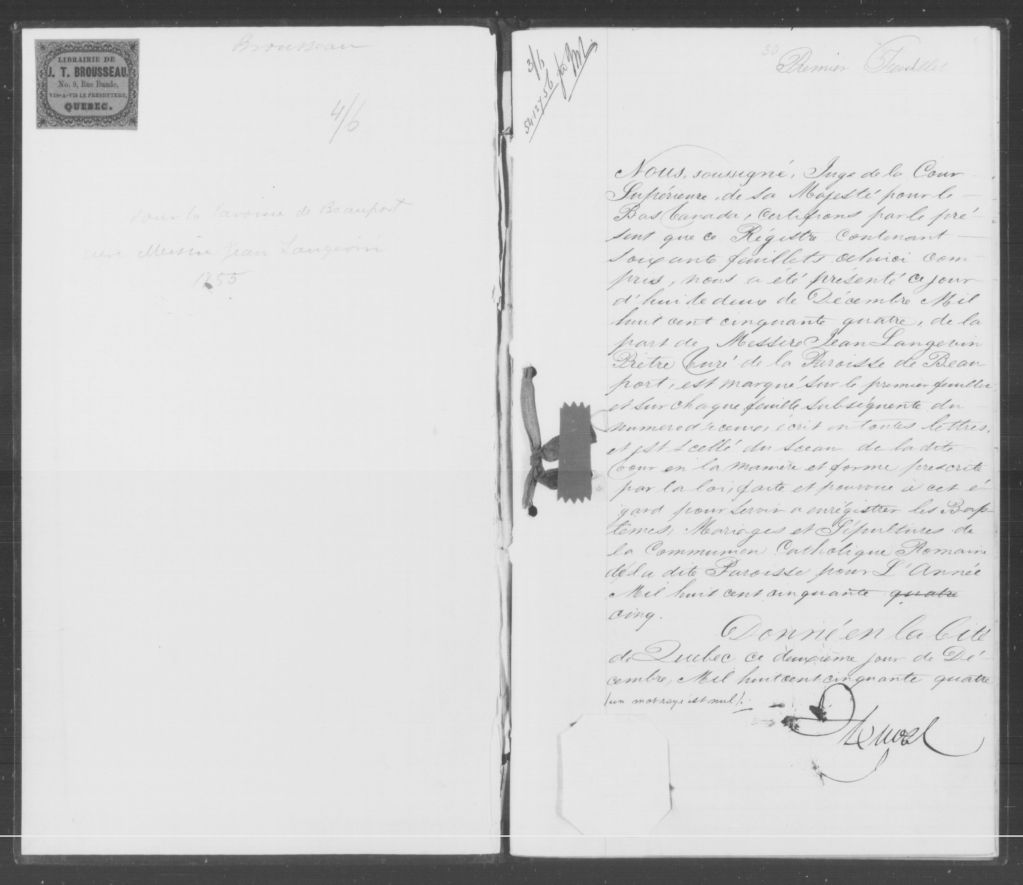 LIBRAIRIE DE
J. T. BROUSSEAU.
No. 9, Rue Buade,
VIS-A-VIS LE PRESBYTERE,
QUEBEC.
Brousseau
4/6
pour la paroisse de Beauport
Messire Jean Langevin
1855
3/6
30
Premier Feuillet
Nous, soussigné, Juge de la Cour
Supérieure, de Sa Majesté pour le
Bas Canada, certifions par le pré
sent que ce Régistre contenant
soixante feuillets celuici com
pris, nous a été présenté ce jour
d'hui le deux de Décembre Mil
huit cent cinquante quatre, de la
part de Messire Jean Langevin
Prêtre Curé de la Paroisse de Beau
port, est marqué sur le premier feuillet
et sur chaque feuille subséquente du
numero écrit en toutes lettres,
et est scellé du Sceau de la dite
Cour en la manière et forme prescrite
par la loi, faite et pourvue à cet é
gard pour servir a enrégistrer les Bap
têmes, Mariages et Sépultures de
la Communion Catholique Romaine
de la dite Paroisse pour L'Année
Mil huit cent cinquante quatre
cinq.
Donné en la Cité
de Québec ce deuxième jour de Dé
cembre, Mil huit cent cinquante quatre
(un mot rayé est nul).